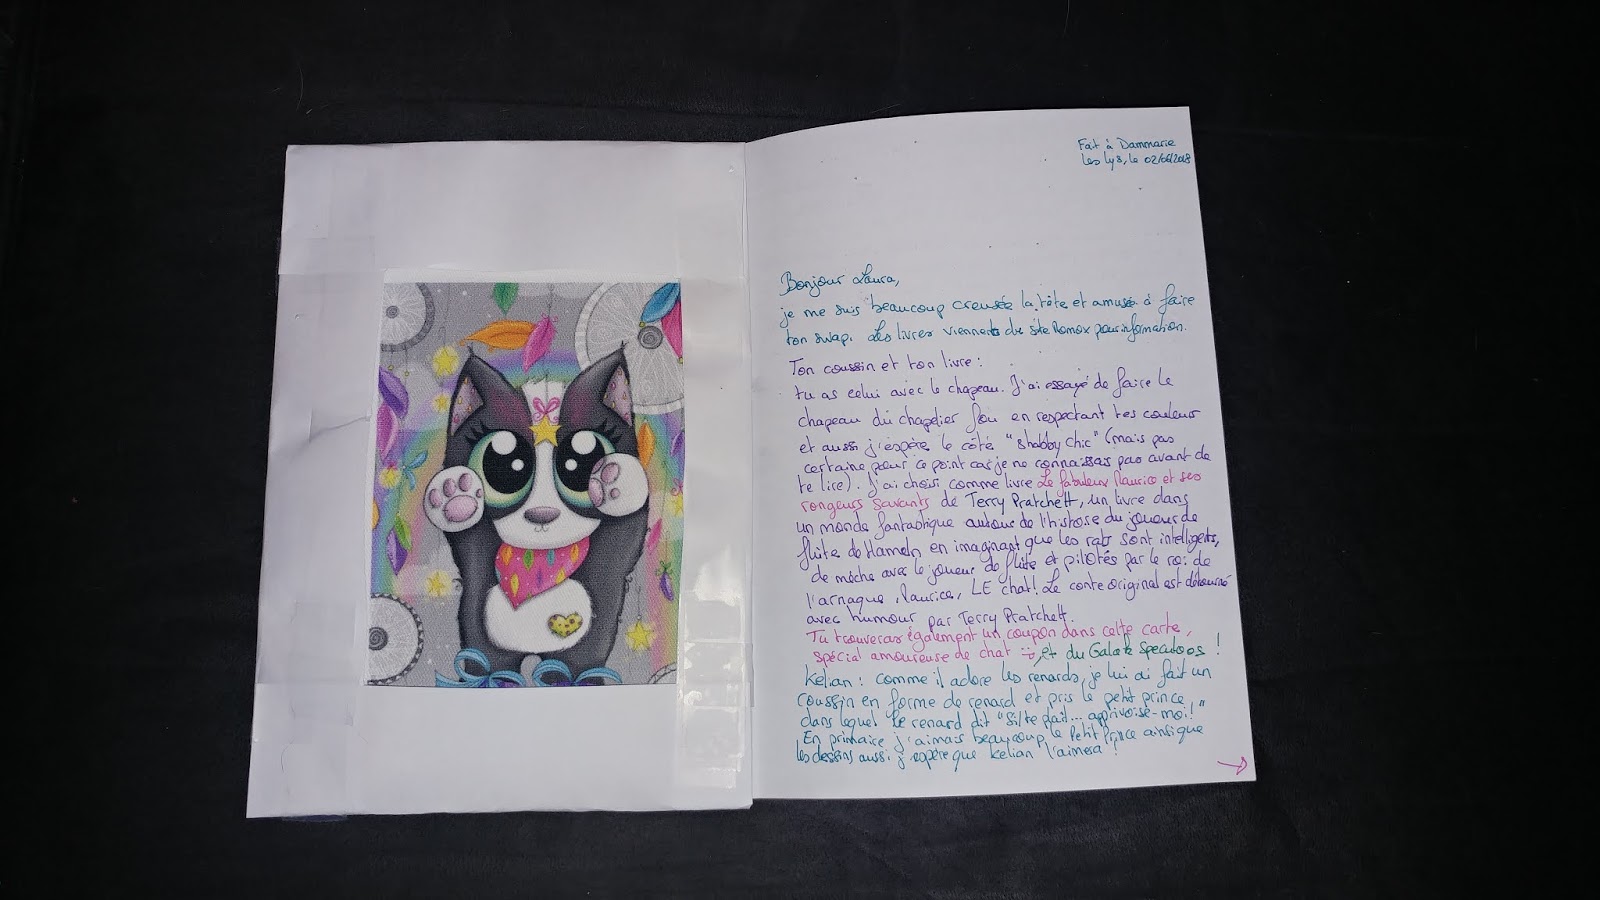 Fait à Dammarie
les Lys, le 02/06/2018
Bonjour Laura,
je me suis beaucoup creusée la tête et amusée à faire
ton swap. Les livres viennent du site Momox pour information.
Ton coussin et ton livre :
tu as celui avec le chapeau. J'ai essayé de faire le
chapeau du chapelier fou en respectant tes couleurs
et aussi j'espère le côté "shabby chic" (mais pas
certaine pour ce point car je ne connaissais pas avant de
te lire). J'ai choisi comme livre Le fabuleux Maurice et ses
rongeurs savants de Terry Pratchett, un livre dans
un monde fantastique autour de l'histoire du joueur de
flûte de Hameln en imaginant que les rats sont intelligents,
de mèche avec le joueur de flûte et pilotés par le roi de
l'arnaque, Maurice, LE chat! Le conte original est détourné
avec humour par Terry Pratchett.
Tu trouveras également un coupon dans cette carte,
spécial amoureuse de chat :) et du Galak Speculoos !
Kelian : comme il adore les renards, je lui ai fait un
coussin en forme de renard et pris le petit prince
dans lequel le renard dit "S'il te plait... apprivoise-moi!"
En primaire j'aimais beaucoup le Petit Prince ainsi que
les dessins aussi j'espère que Kelian l'aimera !